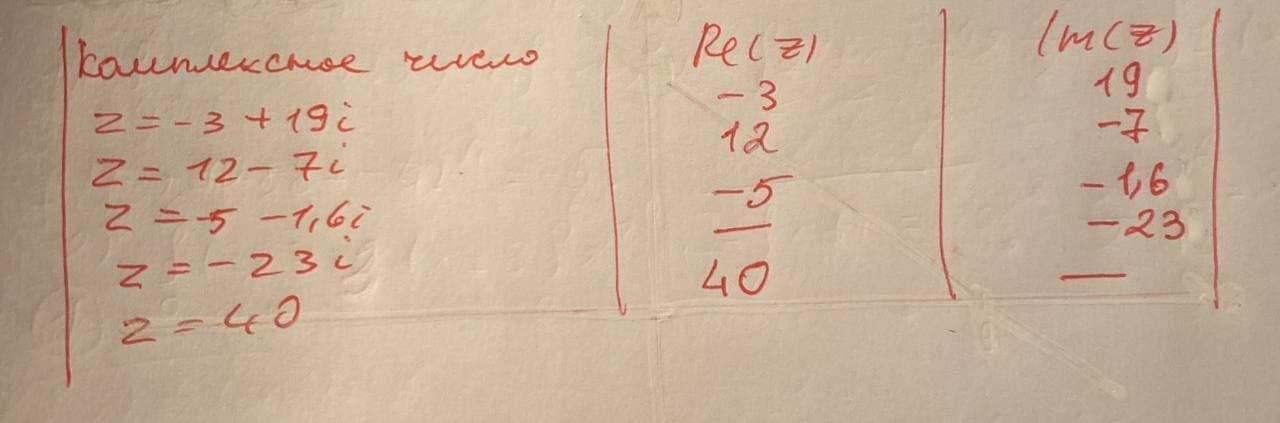 Комплексное число Re(z) Im(z)
z = -3 + 19i -3 19
z = 12 - 7i 12 -7
z = -5 - 1,6i -5 -1,6
z = -23i — -23
z = 40 40 —